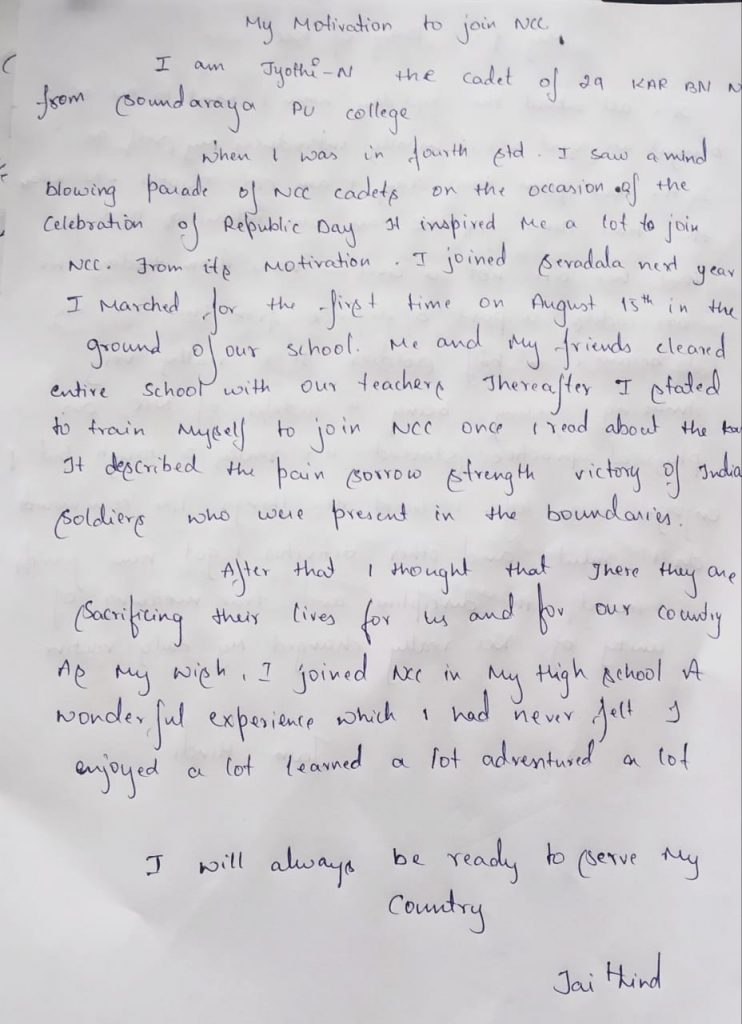 My Motivation to join NCC.
I am Jyothi-N the cadet of 29 KAR BN N
from Soundaraya PU college
When I was in fourth std. I saw a mind
blowing parade of NCC cadets on the occasion of the
Celebration of Republic Day It inspired me a lot to join
NCC. From its Motivation. I joined Sevadala next year
I Marched for the first time on August 15th in the
ground of our school. Me and My friends cleared
entire school with our teachers Thereafter I stated
to train Myself to join NCC once I read about the
It described the pain sorrow strength victory of India
Soldiers who were present in the boundaries.
After that I thought that There they are
Sacrificing their lives for us and for our country
As My wish, I joined NCC in My High school A
wonderful experience which I had never felt I
enjoyed a lot learned a lot adventured a lot
I will always be ready to serve My
Country
Jai Hind